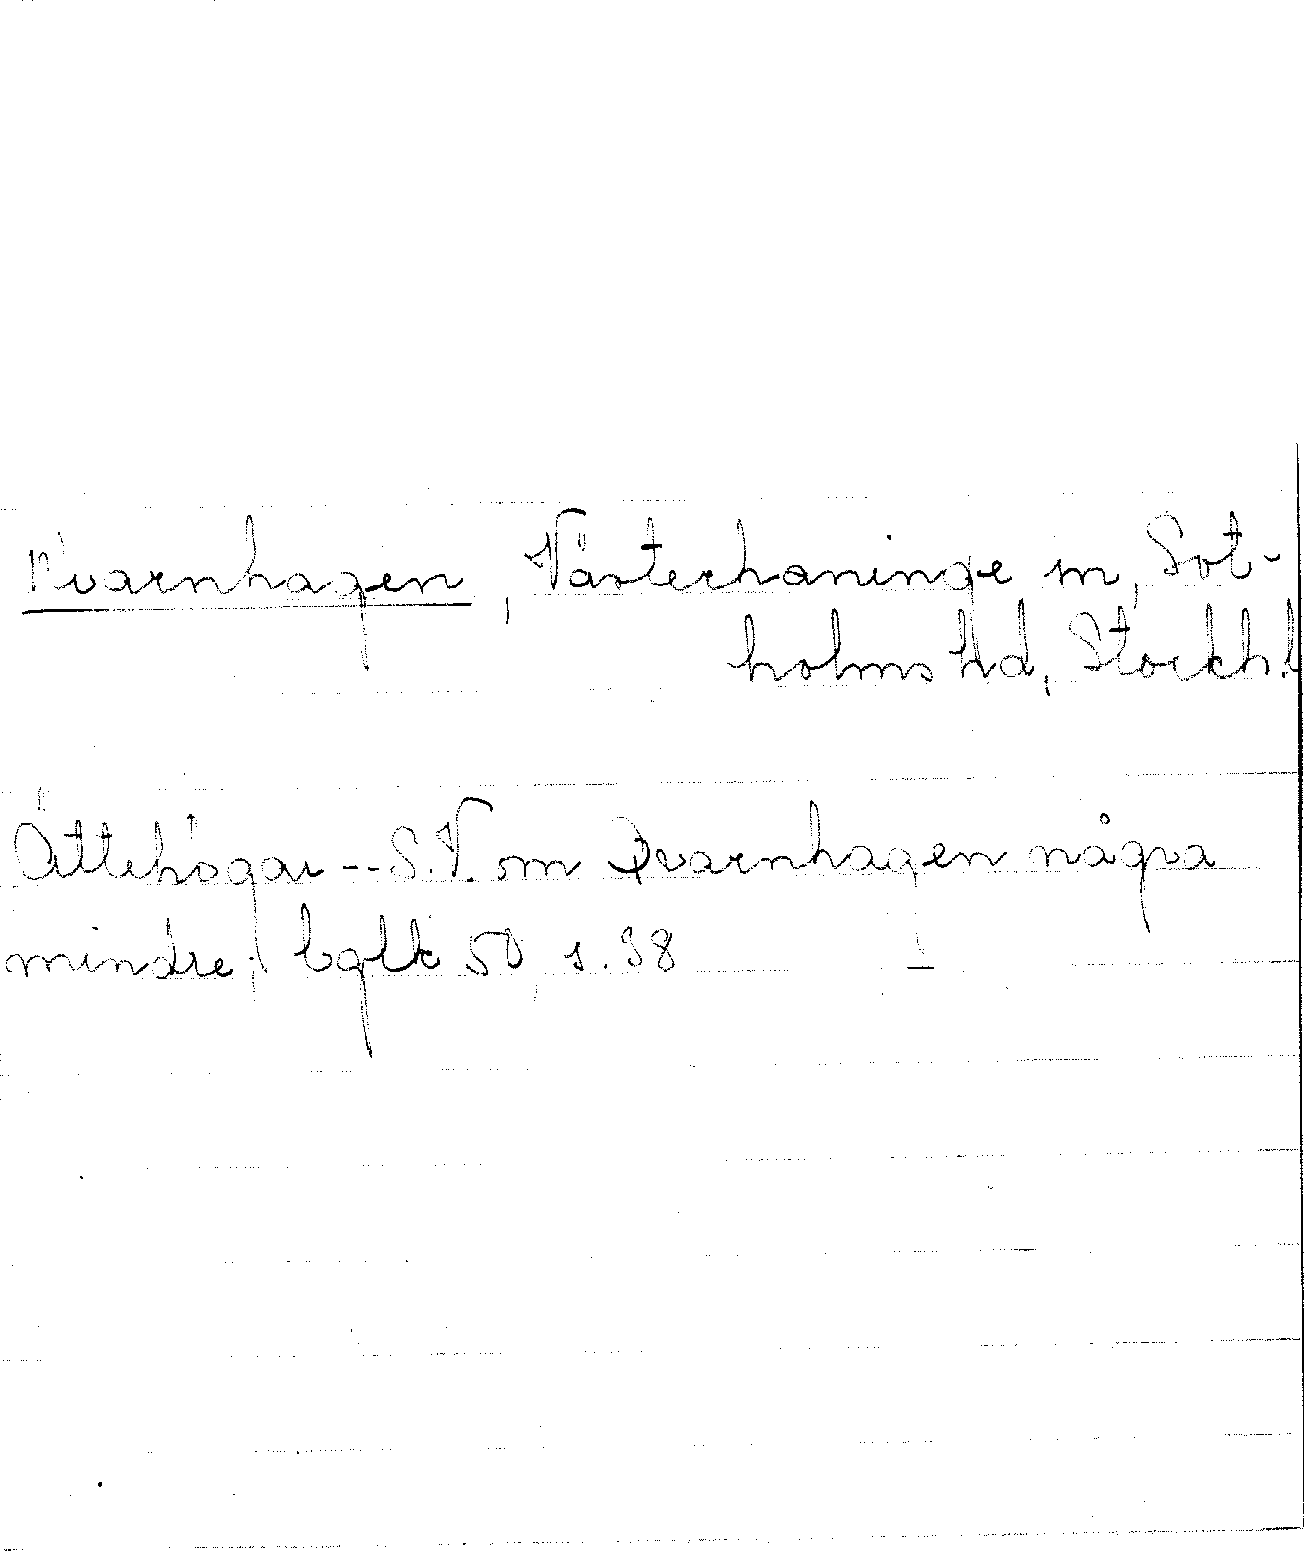 Kvarnhagen, Västerhaninge sn, Sot-
holms hd, Stockh. l
Ättehögar -- S.V. om Qvarnhagen några
mindre; bglk 50, s. 38